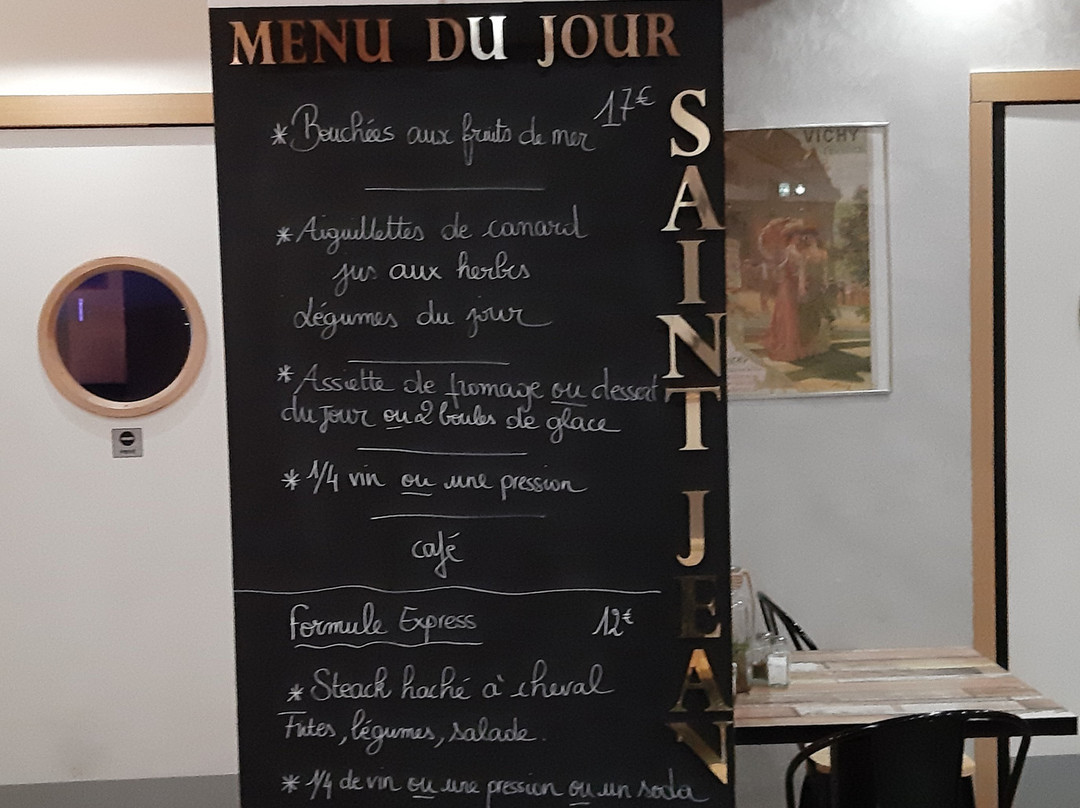 MENU DU JOUR
17€
*Bouchées aux fruits de mer
*Aiguillettes de canard
jus aux herbes
Légumes du jour
*Assiette de fromage ou dessert
du jour ou 2 boules de glace
*1/4 vin ou une pression
café
Formule Express 12€
*Steack haché à cheval
Frites, légumes, salade.
*1/4 de vin ou une pression ou un soda
SAINT JEAN
VICHY